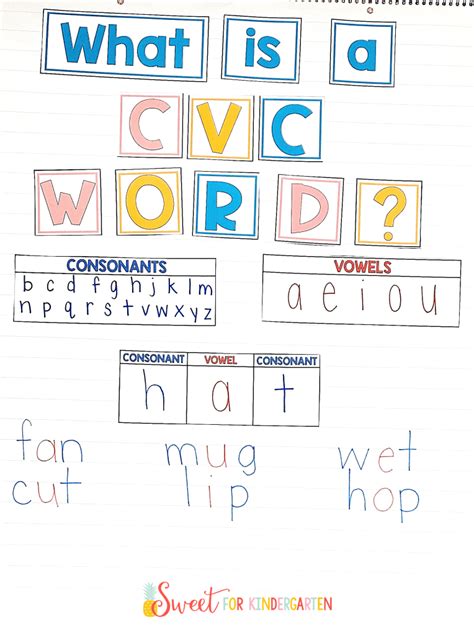 What is a
CVC
WORD?
CONSONANTS
b c d f g h j k l m
n p q r s t v w x y z
VOWELS
a e i o u
CONSONANT VOWEL CONSONANT
h a t
fan mug wet
cut lip hop
Sweet FOR KINDERGARTEN